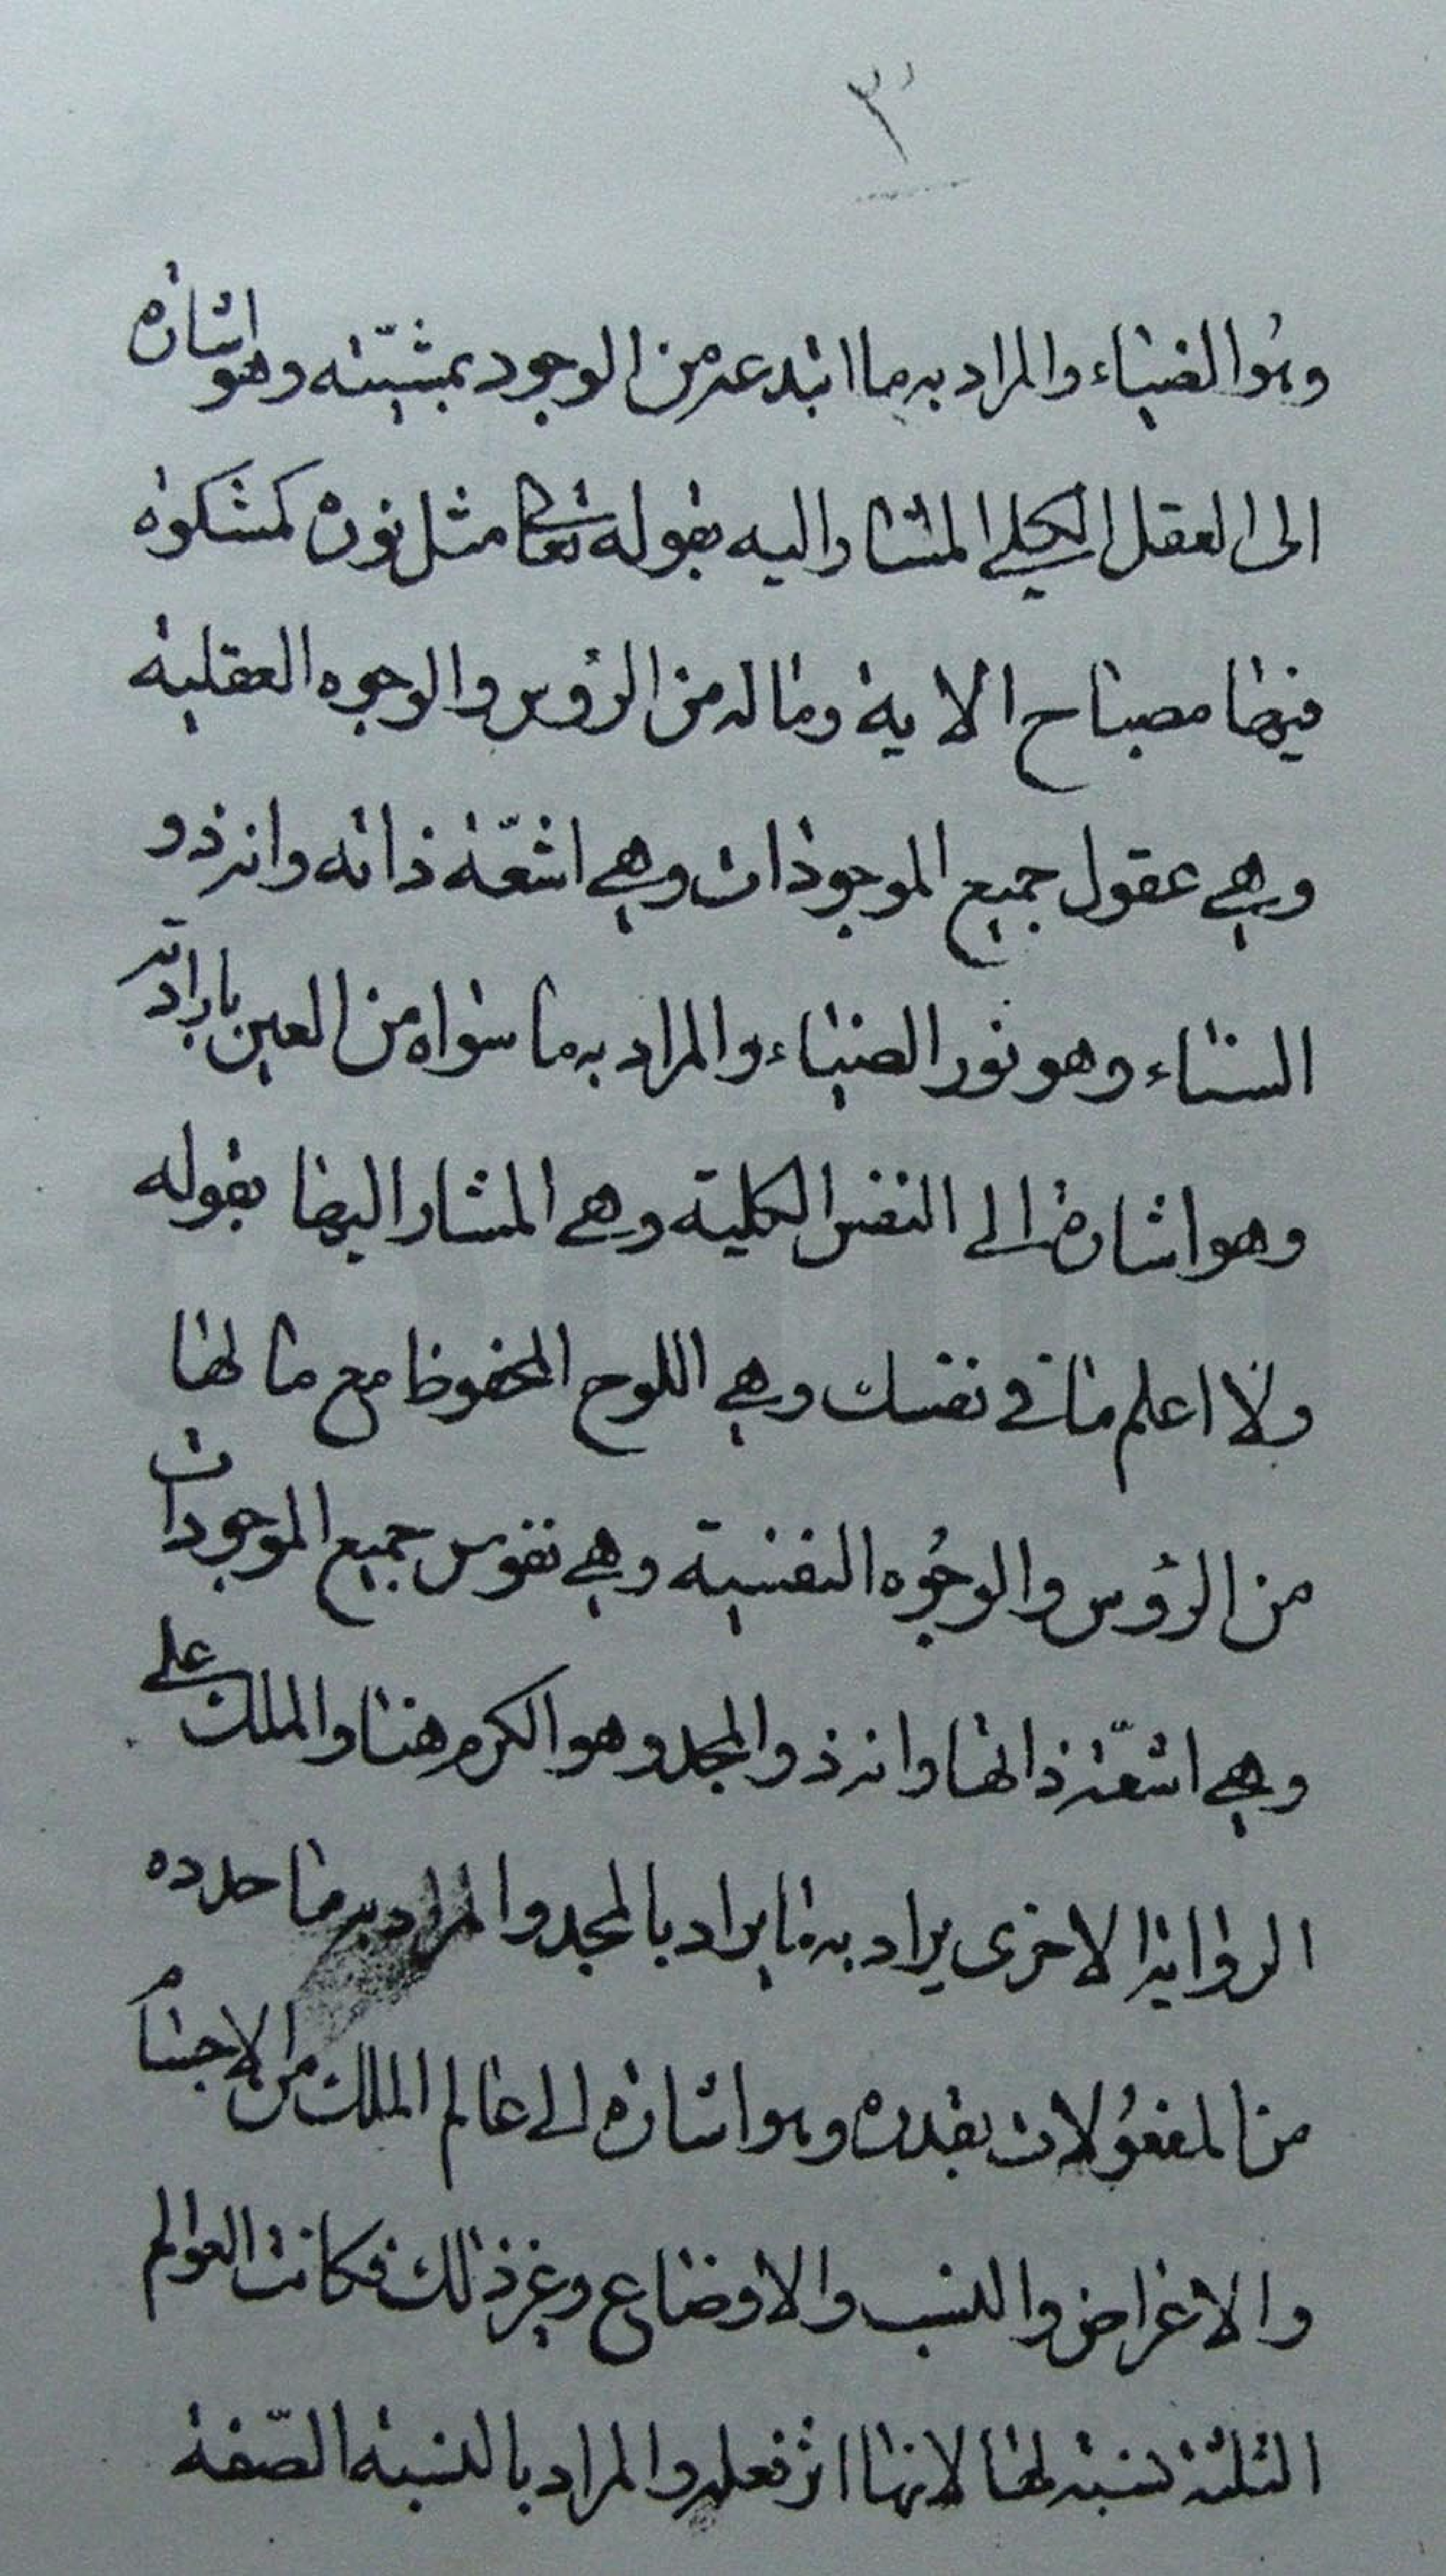 ٣
وهو الضياء والمراد به ما ابتدعه من الوجود بمشيّته وهو اشارة
الى العقل الكلي المشار اليه بقوله تعالى مثل نوره كمشكوة
فيها مصباح الاية وما له من الرؤس والوجوه العقلية
وهي عقول جميع الموجودات وهي اشعّة ذاته وانه ذو
السناء وهو نور الضياء والمراد به ما سواه من العين بارادته
وهو اشارة الى النفس الكلية وهي المشار اليها بقوله
ولا اعلم ما في نفسك وهي اللوح المحفوظ مع ما لها
من الرؤس والوجوه النفسية وهي نفوس جميع الموجودات
وهي اشعّة ذاتها وانه ذو المجد وهو الكرم هنا والملك على
الرواية الاخرى يراد به ما يراد بالمجد والمراد به ما حدده
من المفعولات بقدره وهو اشارة الى عالم الملك من الاجسام
والاعراض والنسب والاوضاع وغير ذلك فكانت العوالم
الثلثة نسبة لها لانها اثر فعله والمراد بالنسبة الصّفة